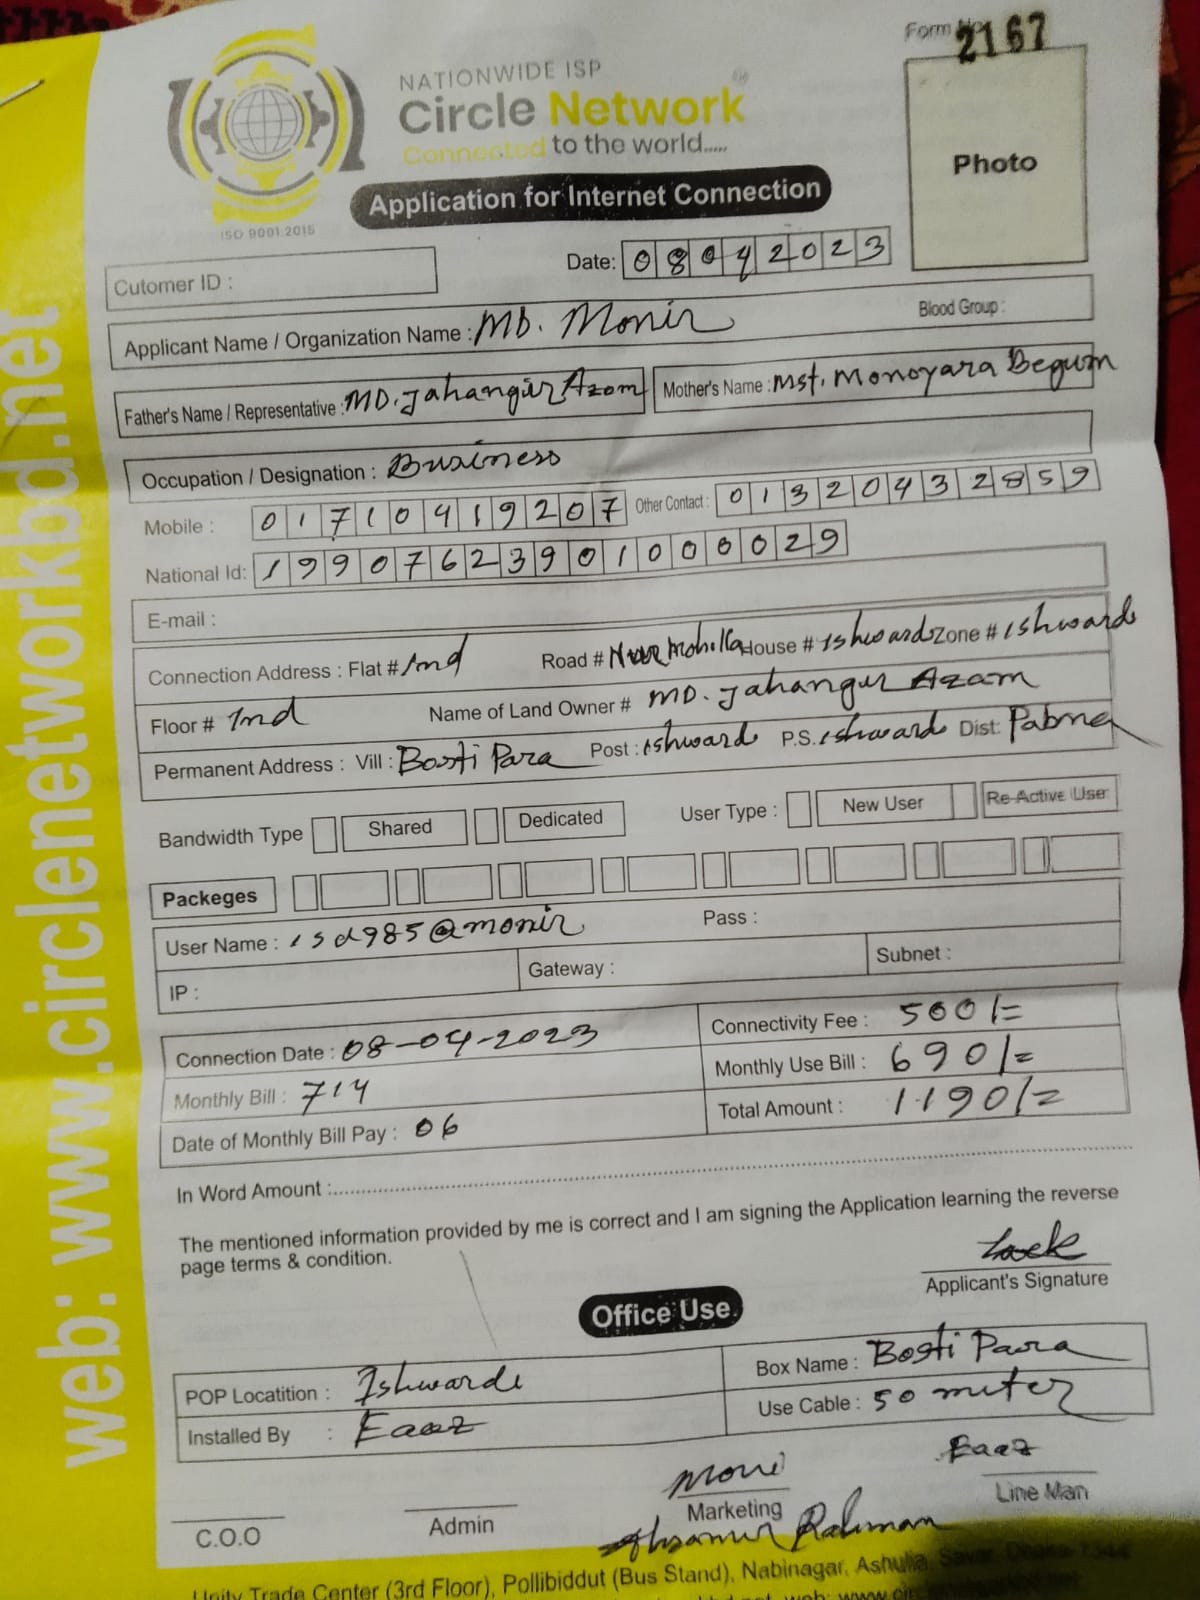 Form No 2167
NATIONWIDE ISP
Circle Network
Connected to the world.....
Photo
Application for Internet Connection
ISO 9001:2015
Cutomer ID :
Date: 08042023
Applicant Name / Organization Name : MD. Monir
Blood Group :
Father's Name / Representative : MD. Jahangir Azom
Mother's Name : Mst. Monoyara Begum
Occupation / Designation : Business
Mobile : 01710419207
Other Contact : 01320432859
National Id: 19907623901000029
E-mail :
Connection Address : Flat # 2nd Road # Noor Moholla House # Ishwardi Zone # Ishwardi
Floor # 2nd Name of Land Owner # MD. Jahangir Azam
Permanent Address : Vill : Bosti Para Post : Ishwardi P.S. Ishwardi Dist: Pabna
Bandwidth Type Shared Dedicated User Type : New User Re-Active User
Packeges
User Name : isd985@monir Pass :
IP : Gateway : Subnet :
Connection Date : 08-04-2023 Connectivity Fee : 500/=
Monthly Bill : 714 Monthly Use Bill : 690/=
Date of Monthly Bill Pay : 06 Total Amount : 1190/=
In Word Amount :
The mentioned information provided by me is correct and I am signing the Application learning the reverse
page terms & condition.
Applicant's Signature
Office Use
POP Locatition : Ishwardi Box Name : Bosti Para
Installed By : Eaaz Use Cable : 50 miter
Moni Eaaz
C.O.O Admin Marketing Line Man
Rahman
Unity Trade Center (3rd Floor), Pollibiddut (Bus Stand), Nabinagar, Ashulia, Savar, Dhaka-1344
web: www.circlenetworkbd.net